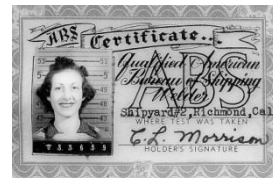 ABS Certificate..
Qualified American
Bureau of Shipping
Welder
ABS
Shipyard#2, Richmond, Cal
WHERE TEST WAS TAKEN
C.L. Morrison
HOLDER'S SIGNATURE